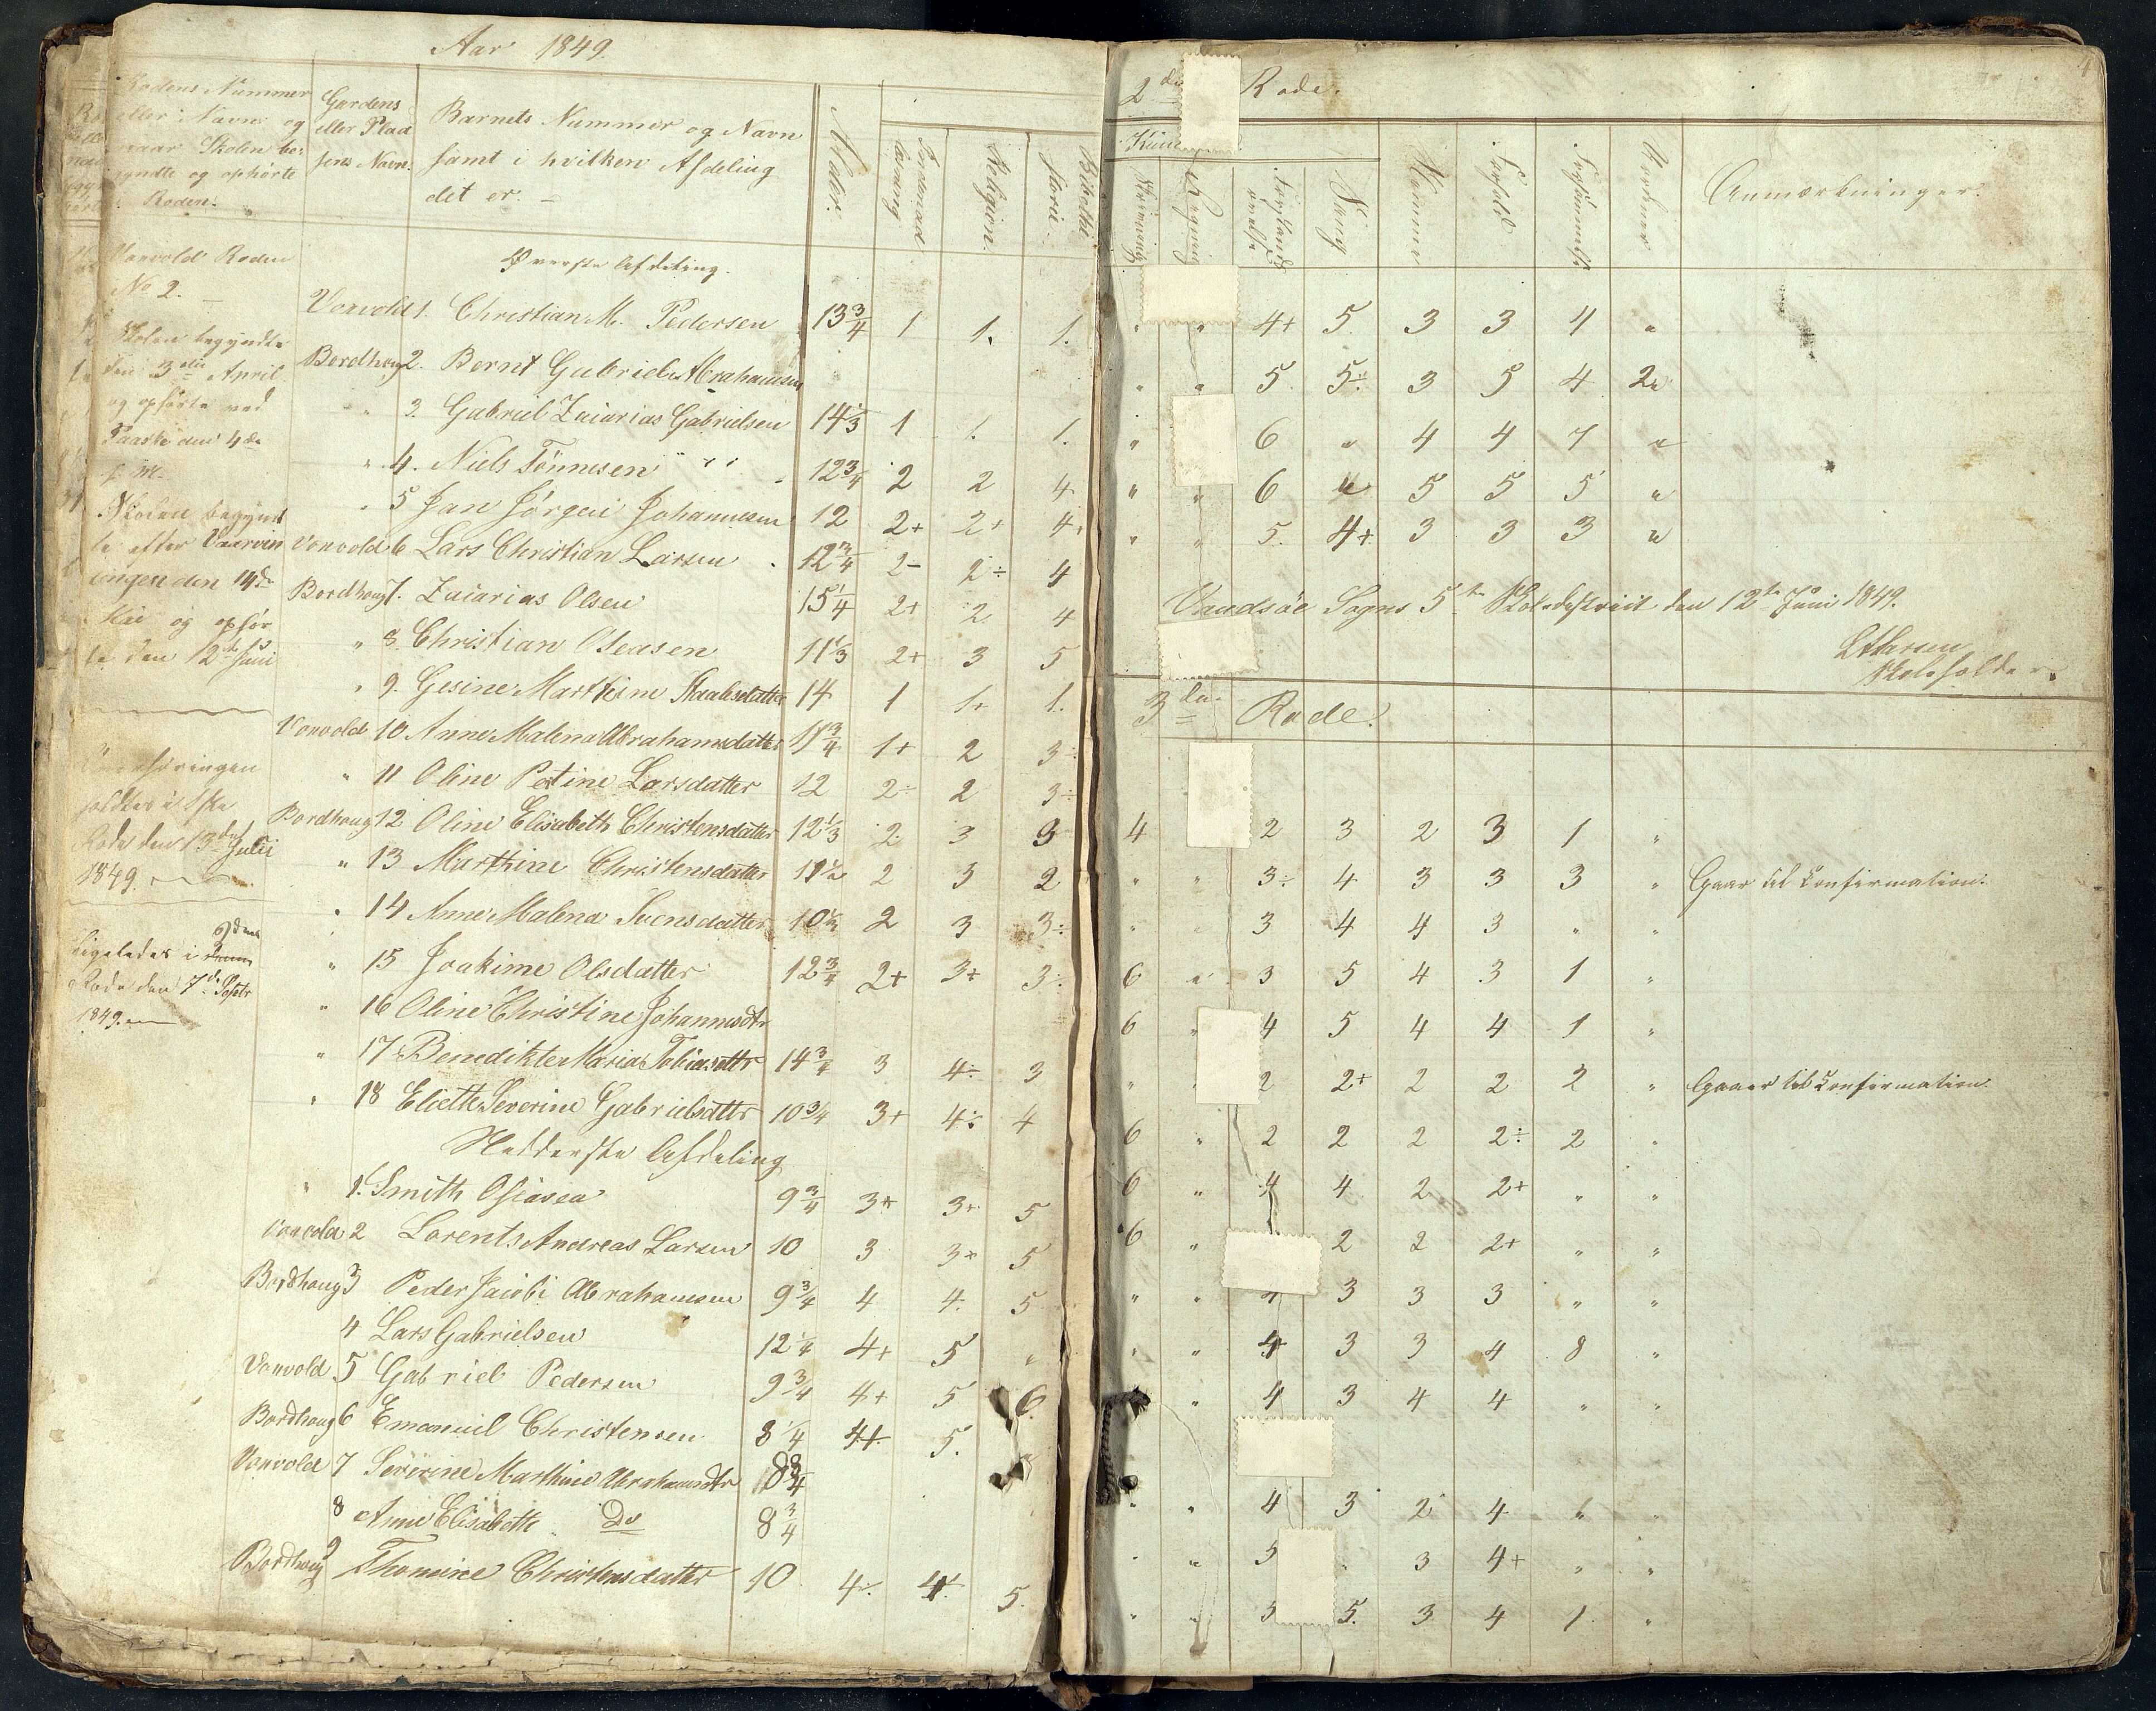 Aar 1849.
Rodens Nummer
eller Navn og
naar Skolen be-
gyndte og ophørte
Roden.
Gardens
eller Plad
sens Navn.
Barnets Nummer og Navn
samt i hvilken Afdeling
det er. –
Alder.
Indenad
læsning
Religion.
Bibelhi
storie.
Vorvold Roden
No 2. –
Skolen begyndte
den 3die April
og ophørte ved
Paaske den 4de
s. M.
Skolen begynd
te efter Vaarvin
ningen den 14de
Mai og ophør
te den 12te Juni
holdtes i 1ste
Rode den 13de Juli
1849.
Ligeledes i 2den
Rode den 7de Septr
1849.
Øverste Afdeling.
Vorvold 1. Christian M. Pedersen 13 3/4 1 1. 1.
Bordhoug 2. Bernt Gabriel Abrahamsen
" 3. Gabriel Zacarias Gabrielsen 14 1/3 1 1. 1.
" 4. Niels Tønnesen " " 12 3/4 2 2 4
" 5 Jan Jørgen Johannesen 12 2+ 2+ 4+
Vorvold 6 Lars Christian Larsen 12 3/4 2- 2÷ 4
Bordhoug 7. Zacarias Olsen 15 1/4 2+ 2 4
" 8 Christian Oseasen 11 1/3 2+ 3 5
" 9. Gesine Marthine Isaaksdatter 14 1 1+ 1.
Vorvold 10 Anne Malena Abrahamsdatter 11 3/4 1+ 2 3÷
" 11 Oline Petine Larsdatter 12 2÷ 2 3÷
Bordhoug 12 Oline Elisabeth Christensdatter 12 1/3 2 3 3
" 13 Marthine Christensdatter 11 1/2 2 3 2
" 14 Anne Malena Svensdatter 10 1/2 2 3 3÷
" 15 Joakime Olsdatter 12 3/4 2+ 3+ 3÷
" 16 Oline Christine Johannesdtr
" 17 Benedikte Maria Tobiasdttr 14 3/4 3 4÷ 3
" 18 Elieth Severine Gabrielsdttr 10 3/4 3+ 4÷ 4
Nedderste Afdeling
" 1. Smith Osiasen 9 3/4 3+ 3+ 5
Vorvold 2 Lorents Andreas Larsen 10 3 3+ 5
Bordhoug 3 Peder Jacobi Abrahamsen 9 3/4 4 4. 5
4 Lars Gabrielsen 12 1/4 4+ 5 "
Vorvold 5 Gabriel Pedersen 9 3/4 4+ 5 6
Bordhoug 6 Emanuel Christensen 8 1/4 4+ 5. "
Vorvold 7 Severine Marthine Abrahamsdtr 10 3/4
8 Anne Elisabeth Do 8 3/4
Bordhoug 9 Thomine Christensdatter 10 4÷ 4+ 5.
2den Rode.
Skrivning
Regning
Forstands
øvelse
Sang
Nemme
Forhold
Forsømmelse
Anmærkninger.
" " 4+ 5 3 3 11 "
" " 5. 5÷ 3 5 4 2
" 6 " 4 4 7 "
" " 6 " 5 5 5 "
" " 5. 4+ 3 3 3 "
Vandsøe Sogns 5te Skoledistrict den 12te Juni 1849.
Larsen
Skoleholder.
3die Rode.
4 2 3 2 3 1 "
" " 3÷ 4 3 3 3 " Gaar til Confirmation.
" " 3 4 4 3 " "
6 " 3 5 4 3 1 "
6 " 4 5 4 4 1 "
" " 2 2+ 2 2 2 " Gaaer til Confirmation.
6 " 2 2 2 2÷ 2 "
6 " 4 4 2 2+ " "
6 " 2 2 2+ " "
" " 4 3 3 3 " "
" " 4 3 3 4 8 "
" 4 3 4 4 " "
" " 4 3 2 4 " "
" " 5 " 3 4+ " "
" " 5. 3 4 1 "